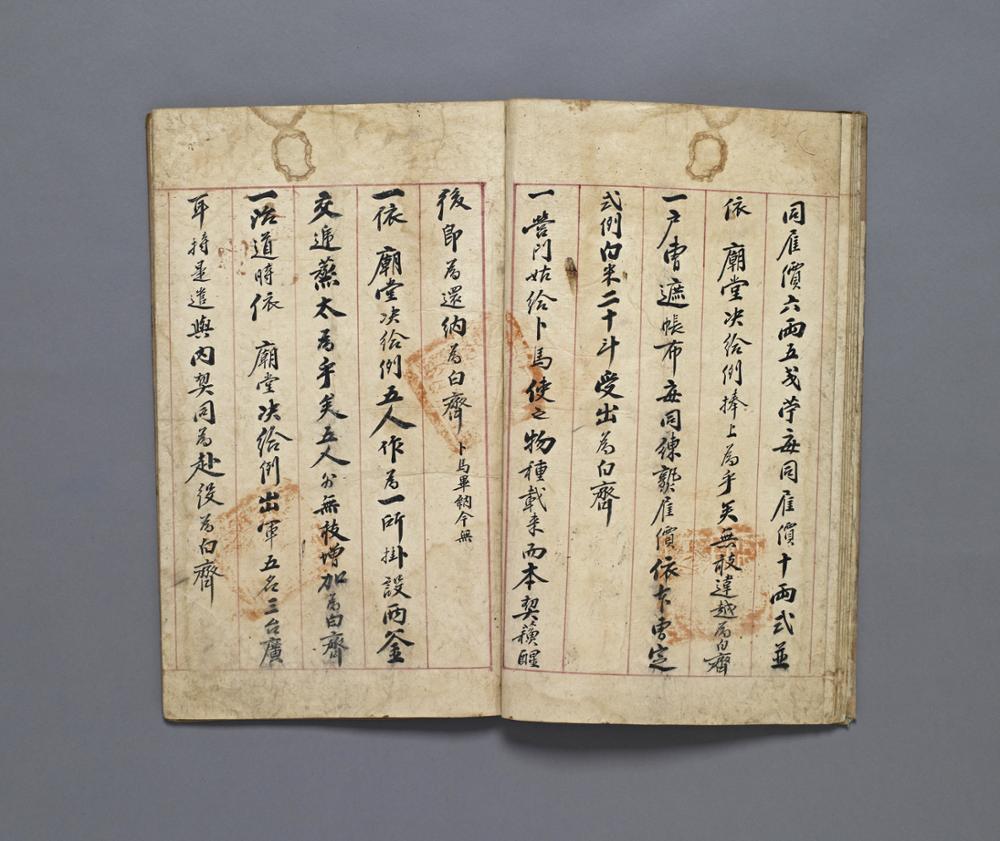 同雇價六兩五戔苧每同雇價十兩式並
依 廟堂决給例捧上為乎矣無枝違越為白齊
一戶曹遮帳布每同練熟雇價依本曹定
式例白米二十斗受出為白齊
一營門姑給卜馬使之物種載来而本契蘓醒
後卽為還納為白齊 卜馬畢納今無
一依 廟堂决給例五人作為一所掛設兩釜
交遞蒸太為乎矣五人外無枝增加為白齊
一治道時依 廟堂决給例出軍五名三台廣
耳持是遣與內契同為赴役為白齊